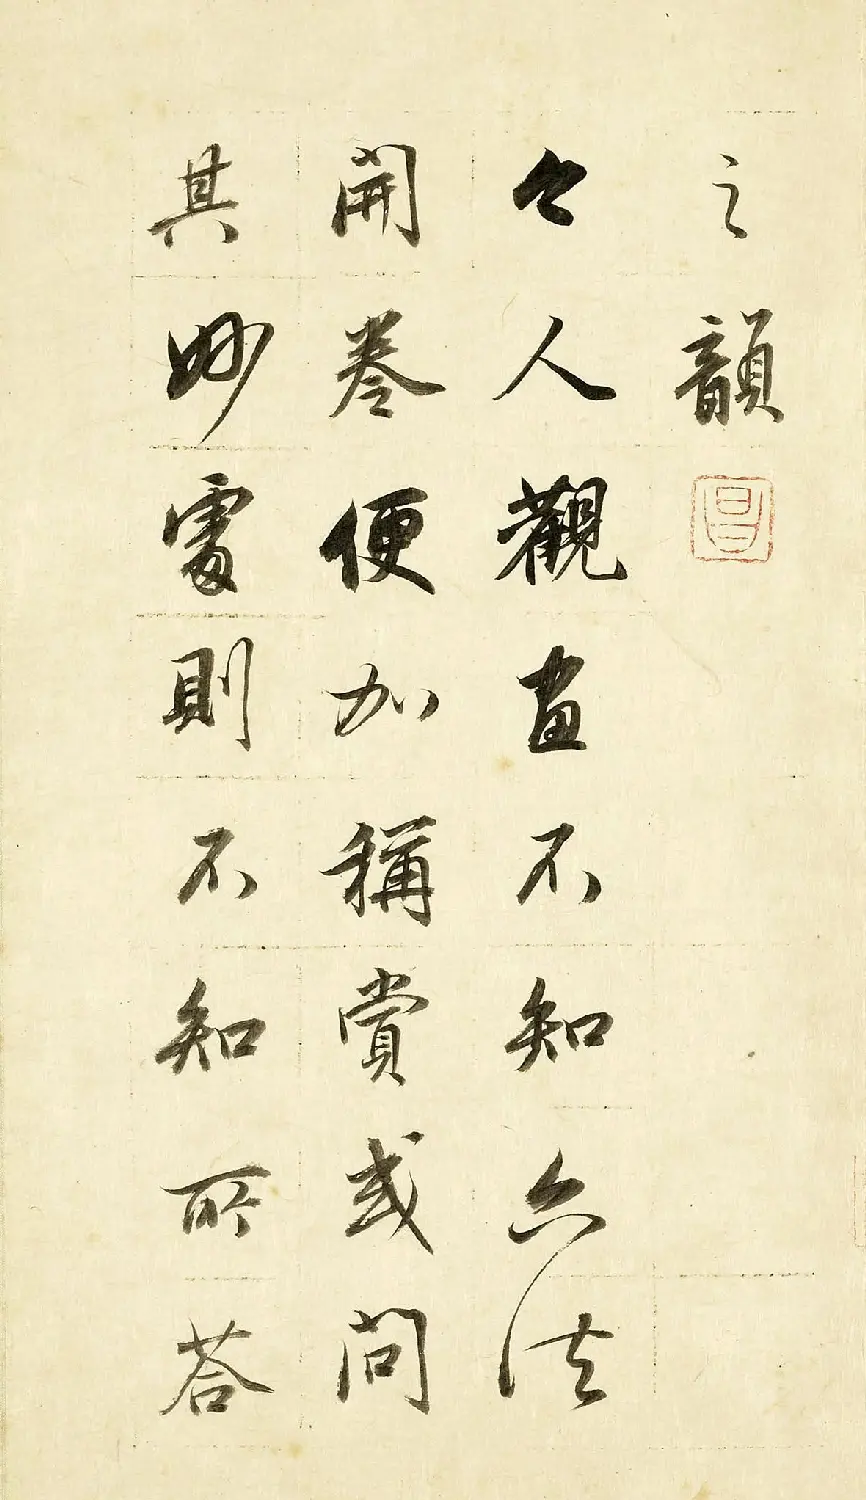 之韻
昌
今人觀畫不知六法
開卷便加稱賞或問
其妙處則不知所荅